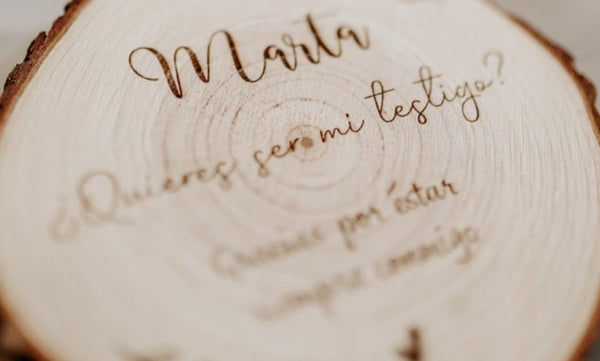 Marta
¿Quieres ser mi testigo?
Gracias por estar
siempre conmigo